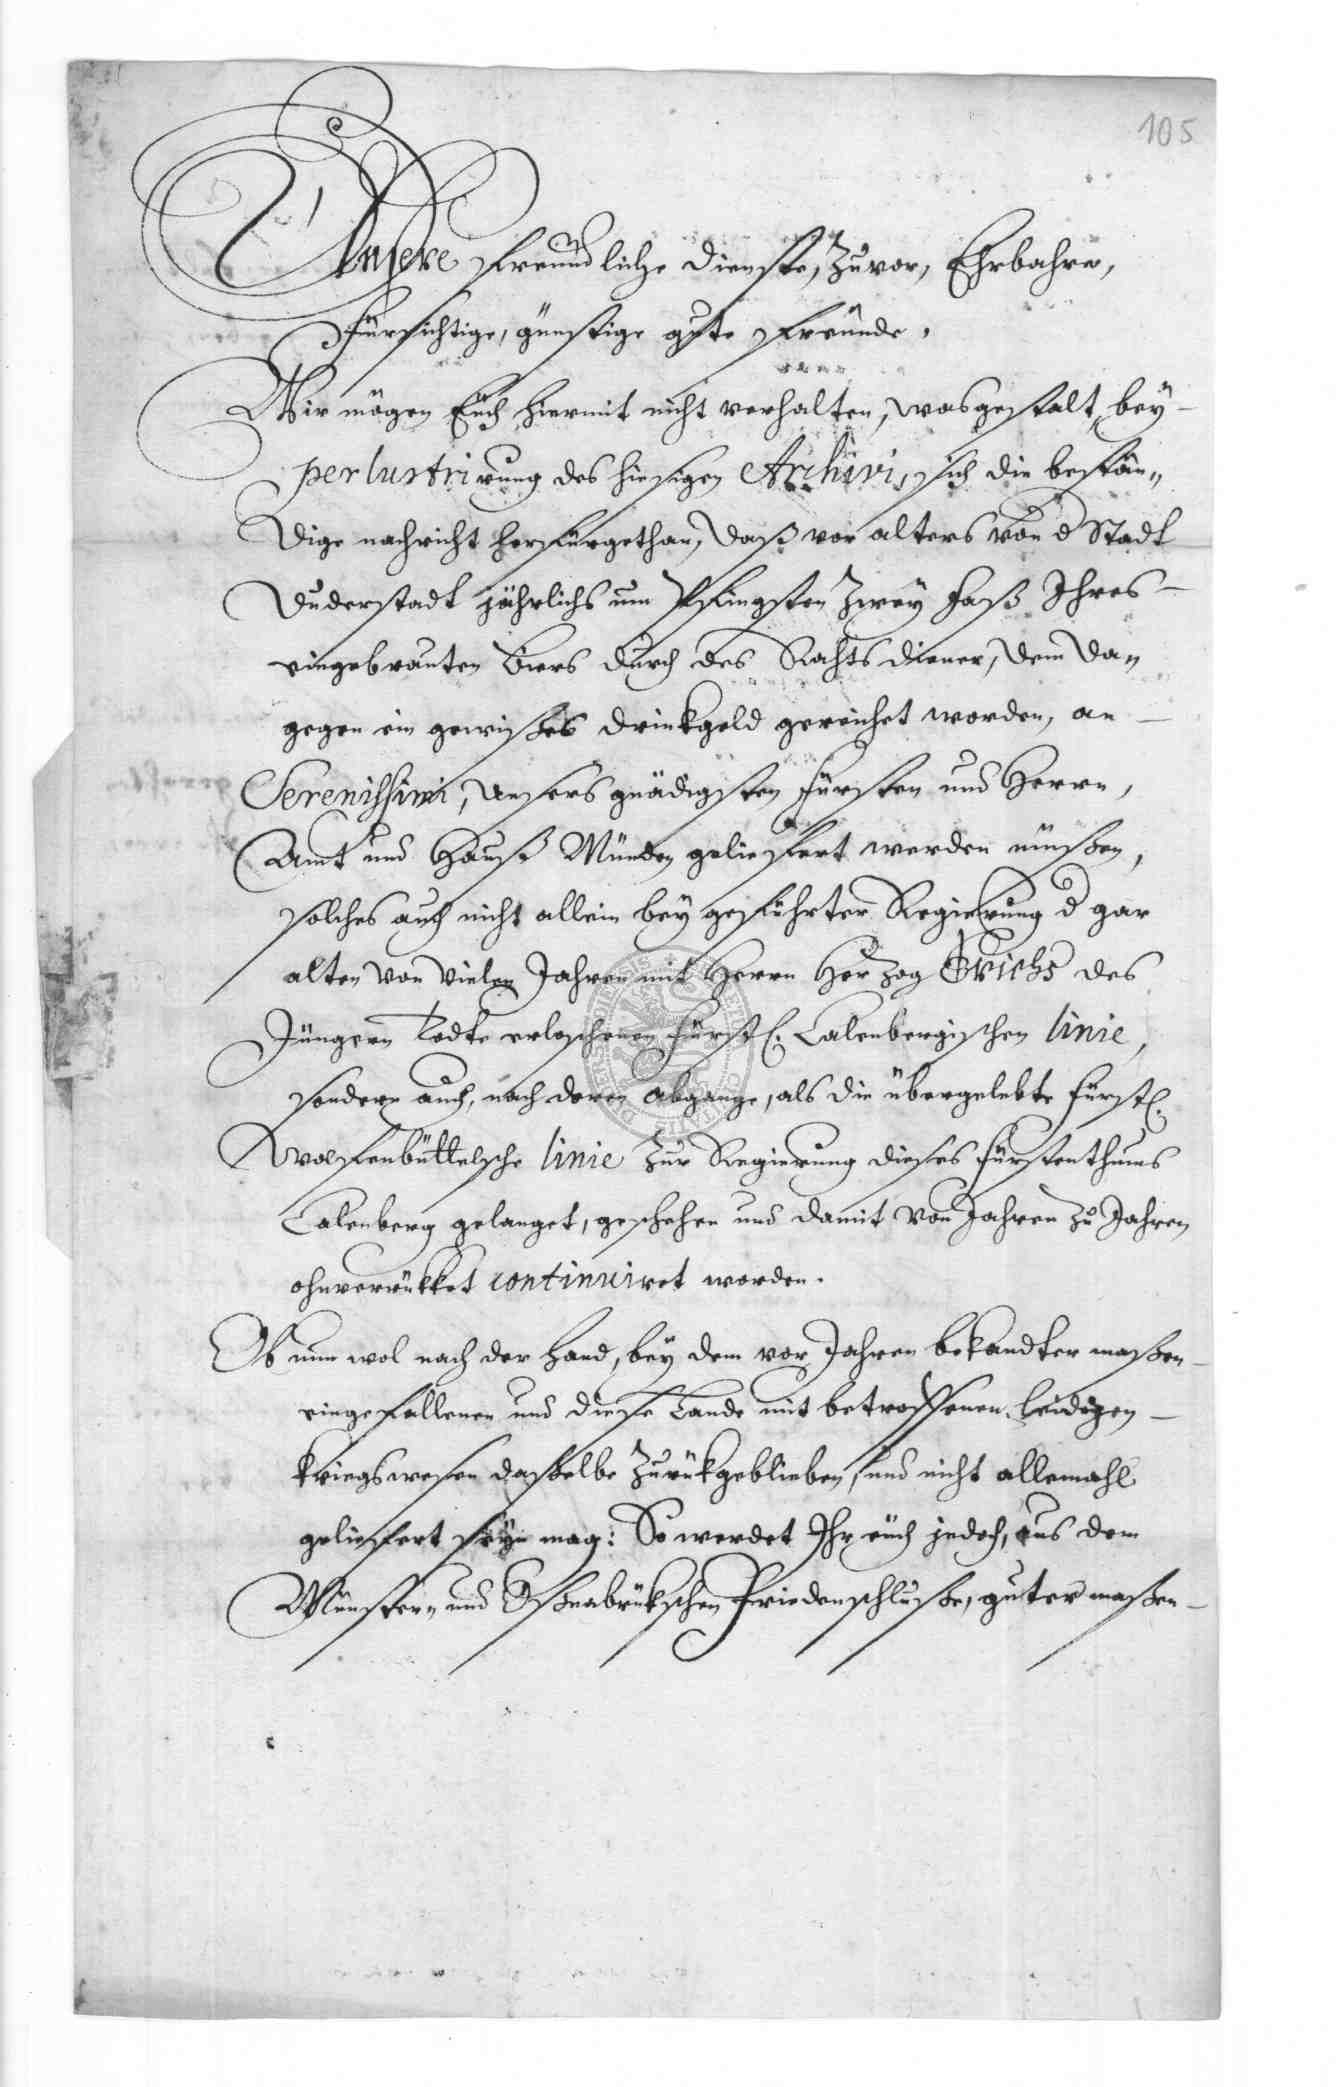 105
Unsere freundliche dienste, zuvor, Ehrbahre,
fürsichtige, günstige gute freünde,
Wir mögen Euch hiermit nicht verhalten, wasgestalt, bey
perlustrirung des hiesigen Archivi, sich die bestän„
dige nachricht herfürgethan, daß vor alters von d Stadt
Duderstadt jährlichs um Pfingsten zwey faß Ihres
eingebrauten biers durch des Rahts diener, dem da„
gegen ein gewißes drinkgeld gereichet worden, an
Serenissimi, unsers gnädigsten fürsten und Herrn,
Amt und Hauß Münden geliefert werden müßen,
solches auch nicht allein bey geführter Regierung d gar
alten von vielen Jahren mit Herrn Herzog Erichs des
Jüngern todte erloschenen fürstl. Calenbergischen linie,
sondern auch, nach deren abgange, als die übergelebte fürstl.
Wolfenbüttelsche linie zur Regierung dieses fürstenthums
Calenberg gelanget, geschehen und damit von Jahren zu Jahren
ohnverrükket continuiret worden.
Ob nun wol nach der hand, bey dem vor Jahren bekandter maßen
eingefallenen und diese Lande mit betroffenen leidigen
kriegswesen daßelbe zurükgeblieben, und nicht allemahl
geliefert seyn mag: So werdet Ihr euch jedoch, aus dem
Münster„ und Oßnabrükschen friedenschluße, guter maßen